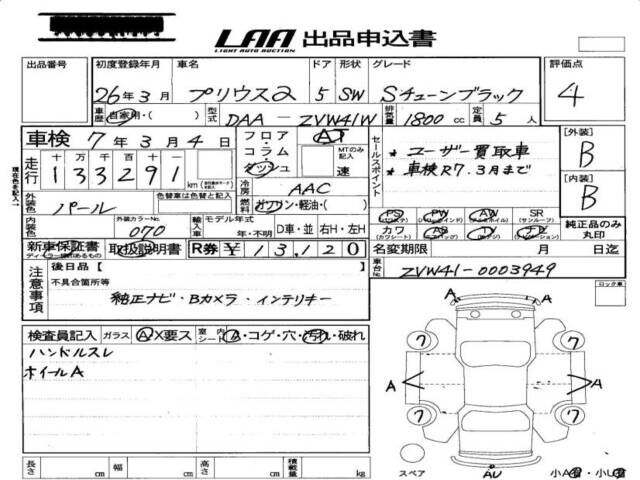 LAA 出品申込書
LIGHT AUTO AUCTION
出品番号 初度登録年月 車名 ドア 形状 グレード 評価点
26年3月 プリウスα 5 SW Sチューンブラック 4
車歴 自家用・( ) 型式 DAA-ZVW41W 排気量 1800cc 定員 5人
車検 7年3月4日 フロア・コラム・ダッシュ AT MTのみ記入 速
走行 十万千百十一 133291 km
冷房 AAC
燃料 ガソリン・軽油・( )
外装色 パール 色替車は色替と記入
内装色 外装カラーNo. 070 輸入車 モデル年式 年・不明 D車・並 右H・左H
セールスポイント
*ユーザー買取車
*車検R7.3月まで
PS PW AW SR(サンルーフ)
カワ(カワシート) AB TV ナビ
【外装】 B
【内装】 B
純正品のみ丸印
新車保証書 取扱説明書 R券 ¥13,120 名変期限 月 日迄
ディーラー印のあるもの
車台No. ZVW41-0003949
注意事項
後日品【 】
不具合箇所等
純正ナビ・Bカメラ・インテリキー
ロック車
検査員記入 ガラス A X要ス 室内シート B・コゲ・穴・汚れ・破れ
ハンドルスレ
ホイールA
A A
7 7
A A
7 7
スペア AU 小A・小U
長さ cm 幅 cm 高さ cm 積載量 kg
現在色を記入→